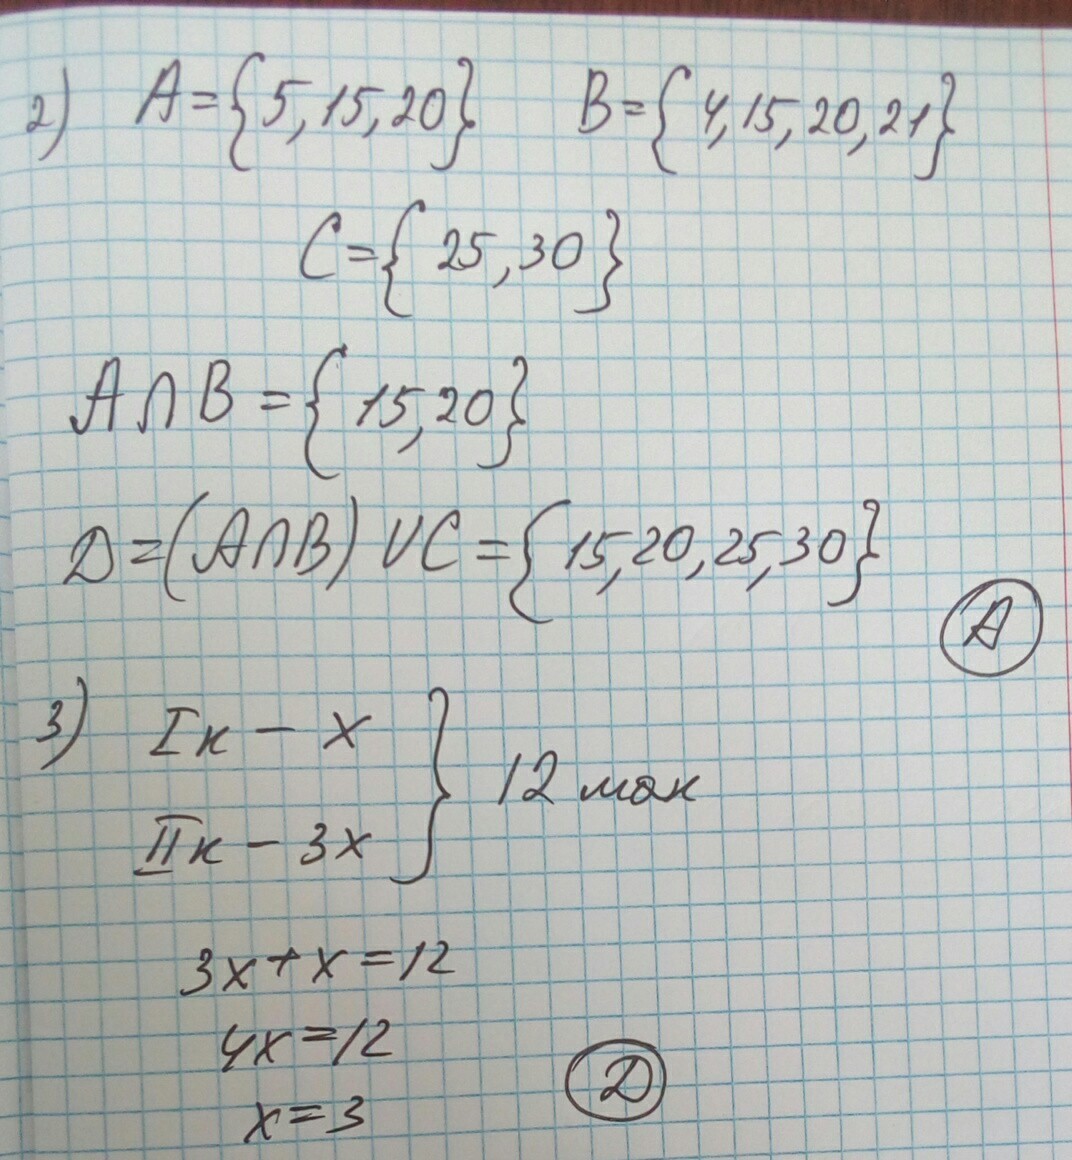 2) A={5,15,20} B={4,15,20,21}
C={25,30}
A∩B={15,20}
D=(A∩B)∪C={15,20,25,30}
A
3) Iк - x
IIк - 3x
} 12 мак
3x+x=12
4x=12
x=3
D